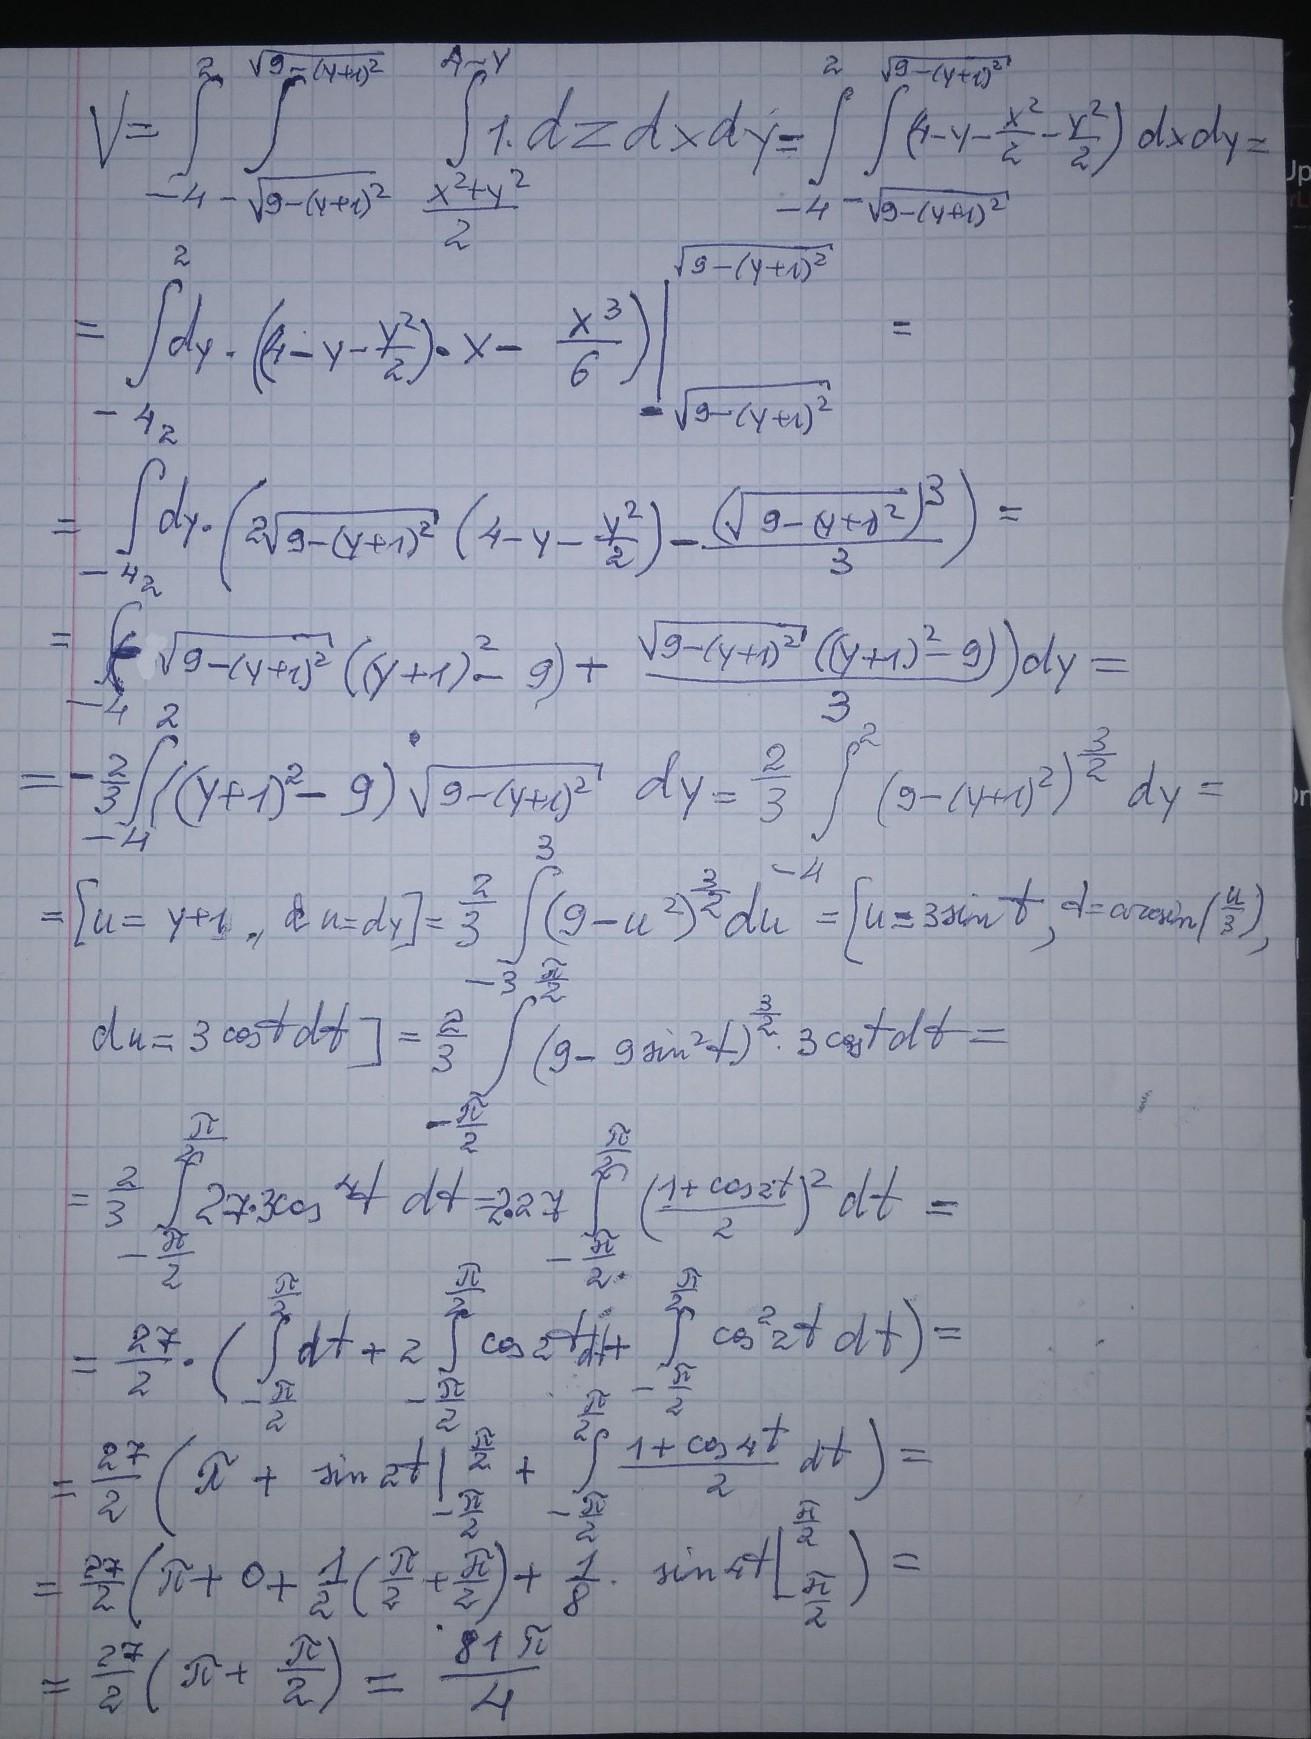 V = ∫_{-4}^{2} ∫_{-√(9-(y+1)²)}^{√(9-(y+1)²)} ∫_{(x²+y²)/2}^{4-y} 1·dz dx dy = ∫_{-4}^{2} ∫_{-√(9-(y+1)²)}^{√(9-(y+1)²)} (4-y-x²/2-y²/2) dx dy =
= ∫_{-4}^{2} dy·(4-y-y²/2)·x - x³/6) |_{-√(9-(y+1)²)}^{√(9-(y+1)²)} =
= ∫_{-4}^{2} dy·(2√(9-(y+1)²) (4-y-y²/2) - (√(9-(y+1)²))³/3) =
= ∫_{-4}^{2} √(9-(y+1)²) ((y+1)²-9) + √(9-(y+1)²) ((y+1)²-9)/3) dy =
= -2/3 ∫_{-4}^{2} ((y+1)²-9) √(9-(y+1)²) dy = 2/3 ∫_{-4}^{2} (9-(y+1)²)^{3/2} dy =
= [u = y+1, du = dy] = 2/3 ∫_{-3}^{3} (9-u²)^{3/2} du = [u = 3sin t, t = arcsin(u/3),
du = 3cos t dt] = 2/3 ∫_{-π/2}^{π/2} (9-9sin²t)^{3/2}·3cos t dt =
= 2/3 ∫_{-π/2}^{π/2} 27·3cos⁴t dt = 2·27 ∫_{-π/2}^{π/2} ((1+cos2t)/2)² dt =
= 27/2·(∫_{-π/2}^{π/2} dt + 2 ∫_{-π/2}^{π/2} cos2t dt + ∫_{-π/2}^{π/2} cos²2t dt) =
= 27/2 (π + sin2t |_{-π/2}^{π/2} + ∫_{-π/2}^{π/2} (1+cos4t)/2 dt) =
= 27/2 (π + 0 + 1/2 (π/2 + π/2) + 1/8·sin4t |_{-π/2}^{π/2}) =
= 27/2 (π + π/2) = 81π/4